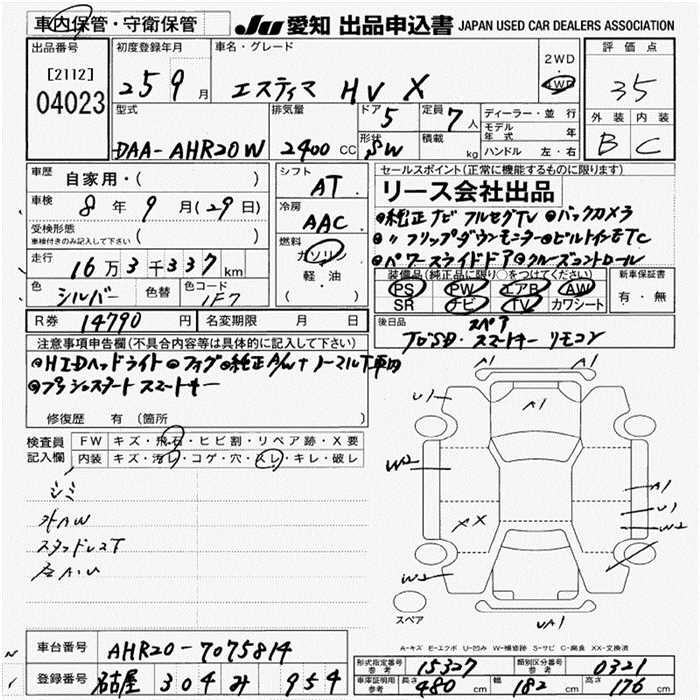 車内保管・守衛保管
JU 愛知 出品申込書 JAPAN USED CAR DEALERS ASSOCIATION
出品番号
[2112]
04023
初度登録年月
25 9 月
車名・グレード
エスティマ HV X
2WD
4WD
評価点
35
外装 内装
B C
型式
DAA-AHR20W
排気量
2400 CC
ドア 5
形状 SW
定員 7 人
積載 kg
ディーラー・並行
モデル年式 年
ハンドル 左・右
車歴
自家用・( )
車検
8 年 9 月(29日)
受検形態
車検付きのみ記入して下さい ( )
走行
16万3千337km
色 シルバー
色替
色コード 1F7
シフト
AT
冷房
AAC
燃料
ガソリン
軽・油
( )
セールスポイント(正常に機能するものに限ります)
リース会社出品
●純正ナビ フルセグTV ●バックカメラ
●〃フリップダウンモニター●ビルトインETC
●パワースライドドア●クルーズコントロール
装備品(純正品に限り○をつけてください)
PS PW エアB AW
SR ナビ TV カワシート
新車保証書
有・無
R券 14790 円
名変期限 月 日
後日品
スペア
スマートキー リモコン
注意事項申告欄(不具合内容等は具体的に記入して下さい)
●HIDヘッドライト ●フォグ●純正A/W+ノーマルT車内
●プッシュスタート スマートキー
修復歴 有(箇所 )
検査員記入欄
FW キズ・飛石・ヒビ割・リペア跡・X要
内装 キズ・汚レ・コゲ・穴・スレ・キレ・破レ
シミ
外AW
スタッドレスT
A1
A1
U1
W2
A1
U1
W2
AX
W2
UA1
スペア
A-キズ E-エクボ U-凹み W-補修跡 S-サビ C-腐食 XX-交換済
車台番号 AHR20-7075814
登録番号 名古屋 304 み 954
形式指定番号 参考 15327
類別区分番号 参考 0321
車庫証明用 参考 長さ 480 cm 幅 182 cm 高さ 176 cm